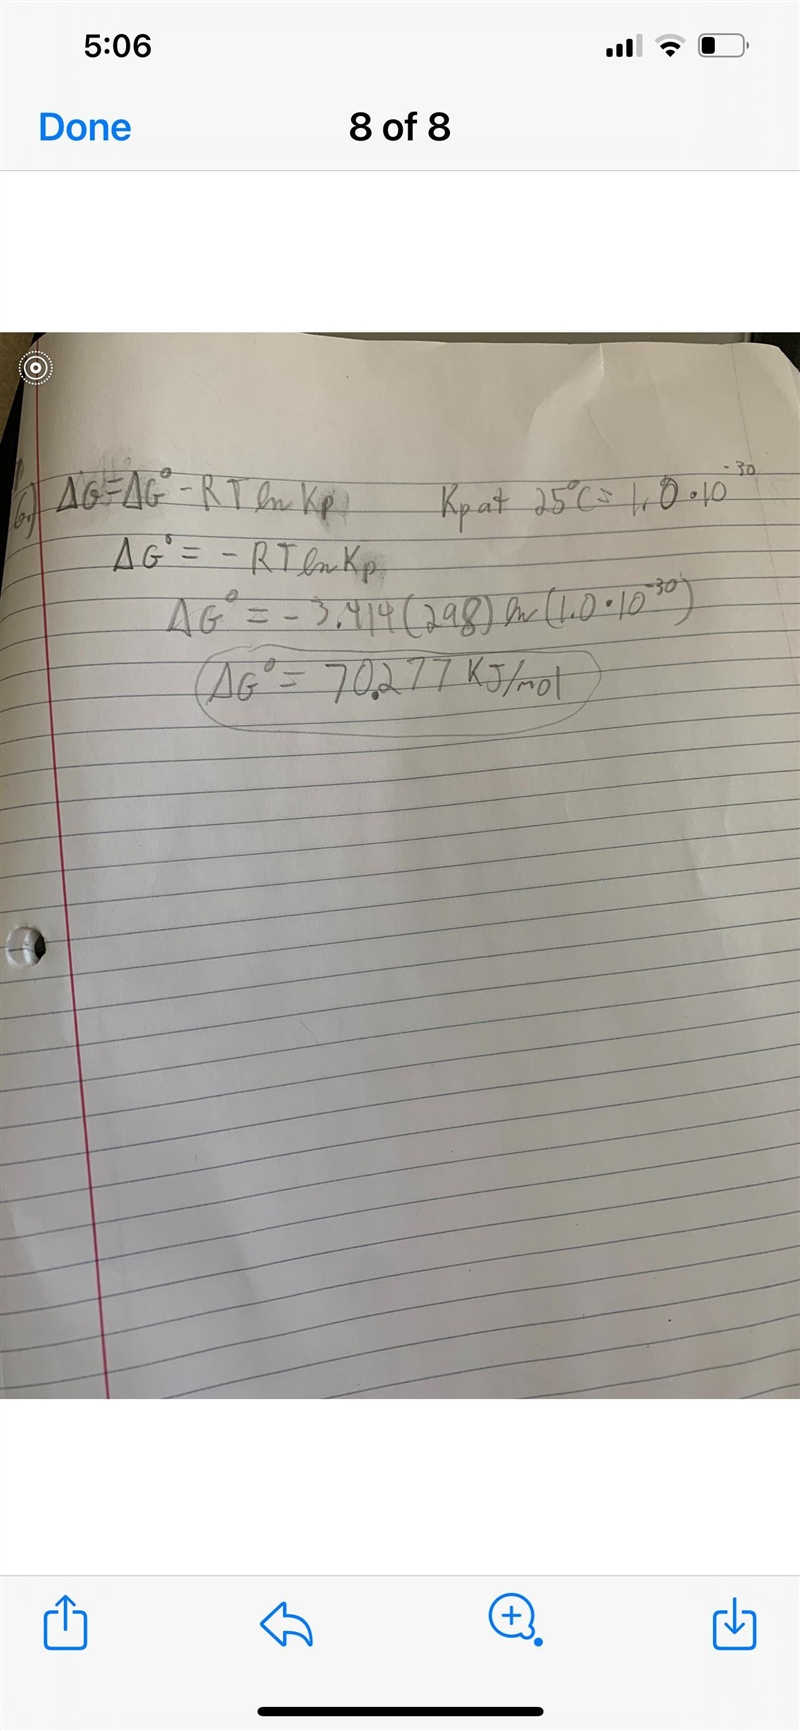 5:06
Done 8 of 8
6.) ΔG=ΔG° - RT ln Kp Kp at 25°C = 1.0 • 10⁻³⁰
ΔG° = - RT ln Kp
ΔG° = - 3.414 (298) ln (1.0 • 10⁻³⁰)
ΔG° = 70.277 KJ/mol